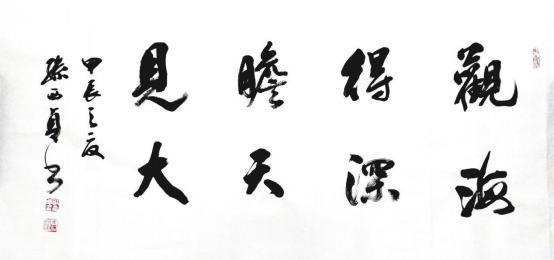 觀海
得深
瞻天
見大
甲辰之夏
西貞书